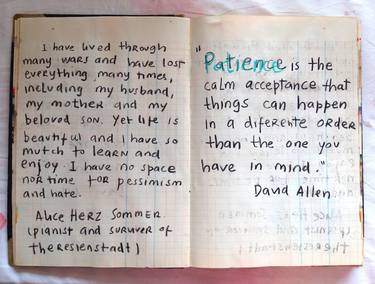 I have lived through
many wars and have lost
everything many times,
including my husband,
my mother and my
beloved son. Yet life is
beautful and I have so
mutch to learn and
enjoy. I have no space
nor time for pessimism
and hate.
Alice HERZ SOMMER.
(pianist and surviver of
Theresienstadt)
"Patience is the
calm acceptance that
things can happen
in a diferente order
than the one you
have in mind."
David Allen